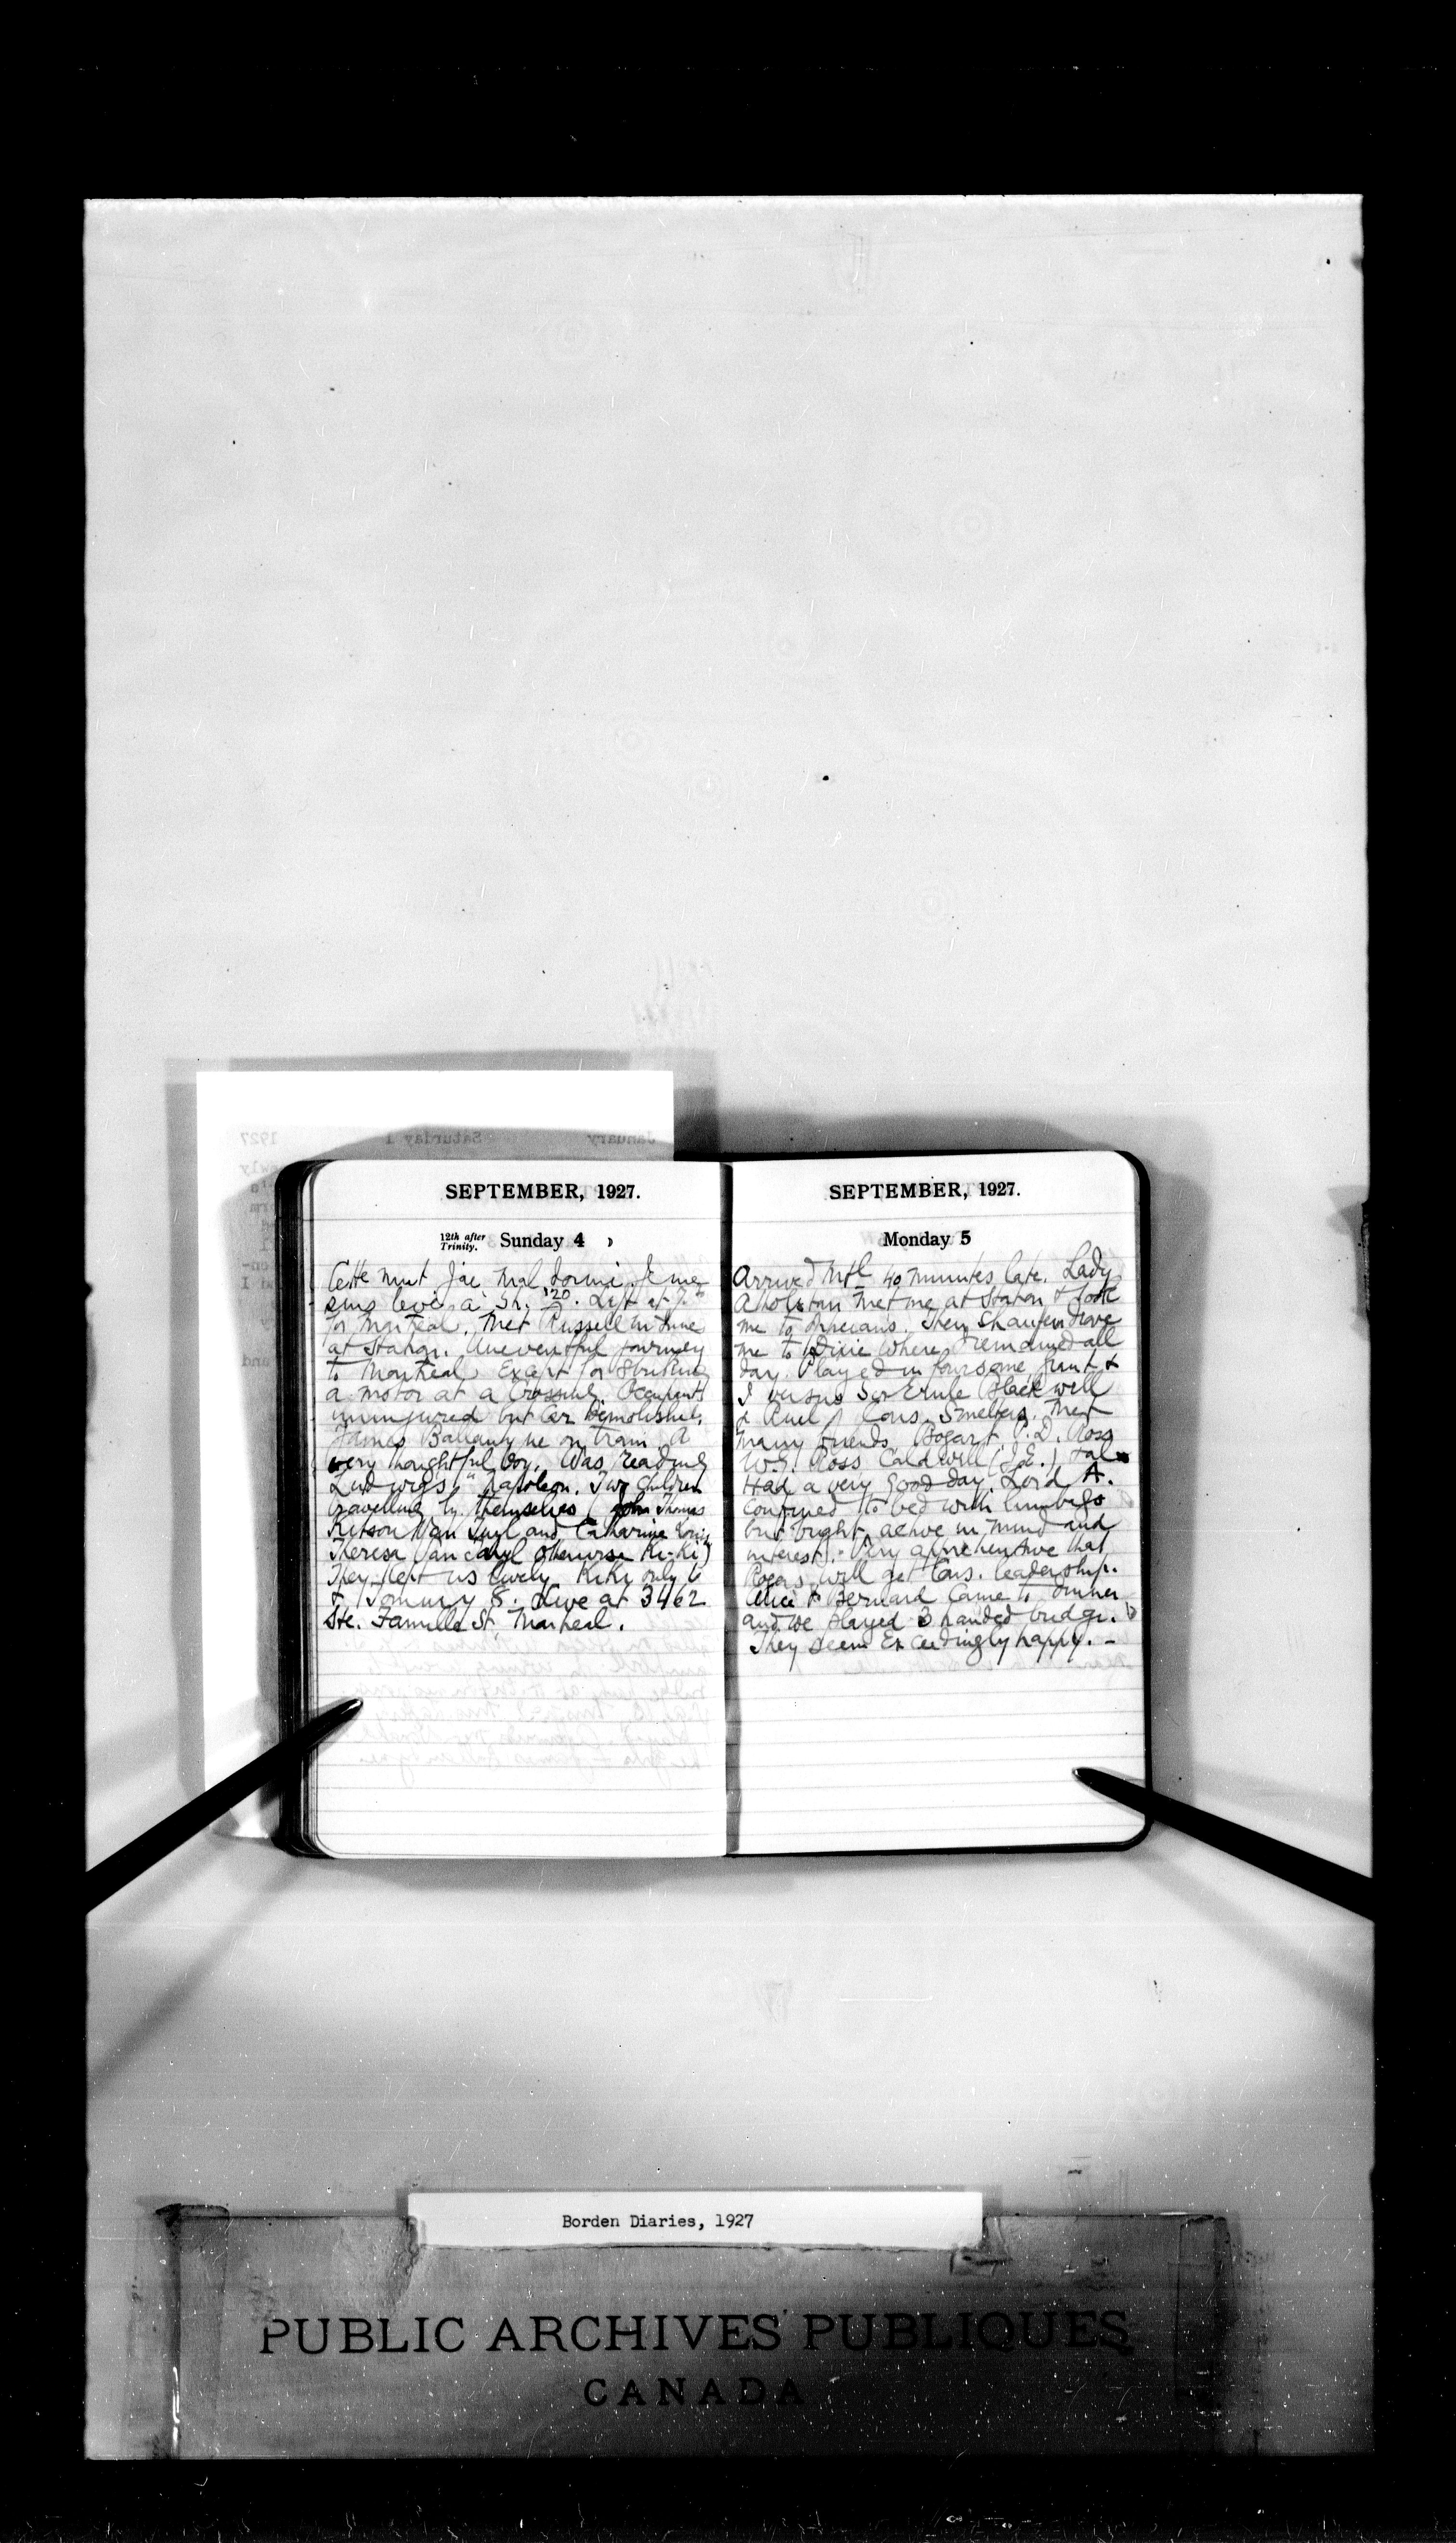 SEPTEMBER, 1927.
12th after Trinity. Sunday 4
Cette nuit j'ai mal dormi. Je me
suis levé à 5h. 20. Left at 7.
for Montreal. Met Russell
at Station. Uneventful journey
to Montreal except for striking
a motor at a crossing. Occupants
uninjured but car demolished.
James Ballantyne on train. A
very thoughtful boy. Was reading
Ludwigs "Napoleon. Two children
travelling by themselves (John Thomas
Kitson Van and Catharine
Theresa Van otherwise Ki-Ki)
They kept us lively. KiKi only 6
& Tommy 8. Live at 3462
Ste. Famille St, Montreal.
SEPTEMBER, 1927.
Monday 5
Arrived Mtl 40 minutes late. Lady
Atholstan met me at Station & took
me to Then Chauffeur drove
me to Dixie where I remained all
day. Played in foursome, Grant &
I versus Sir Ernie Blackwell
& Cons. Smelters. Met
many friends, Bogart, P.D. Ross
W.G. Ross Caldwell (J.E.)
Had a very good day. Lord A.
confined to bed with lumbago
but bright, active in mind and
interest. Very apprehensive that
Rogers will get Cons. leadership.
Alice & Bernard came to dinner
and we played 3 handed bridge.
They seem exceedingly happy. -
Borden Diaries, 1927
PUBLIC ARCHIVES PUBLIQUES
CANADA